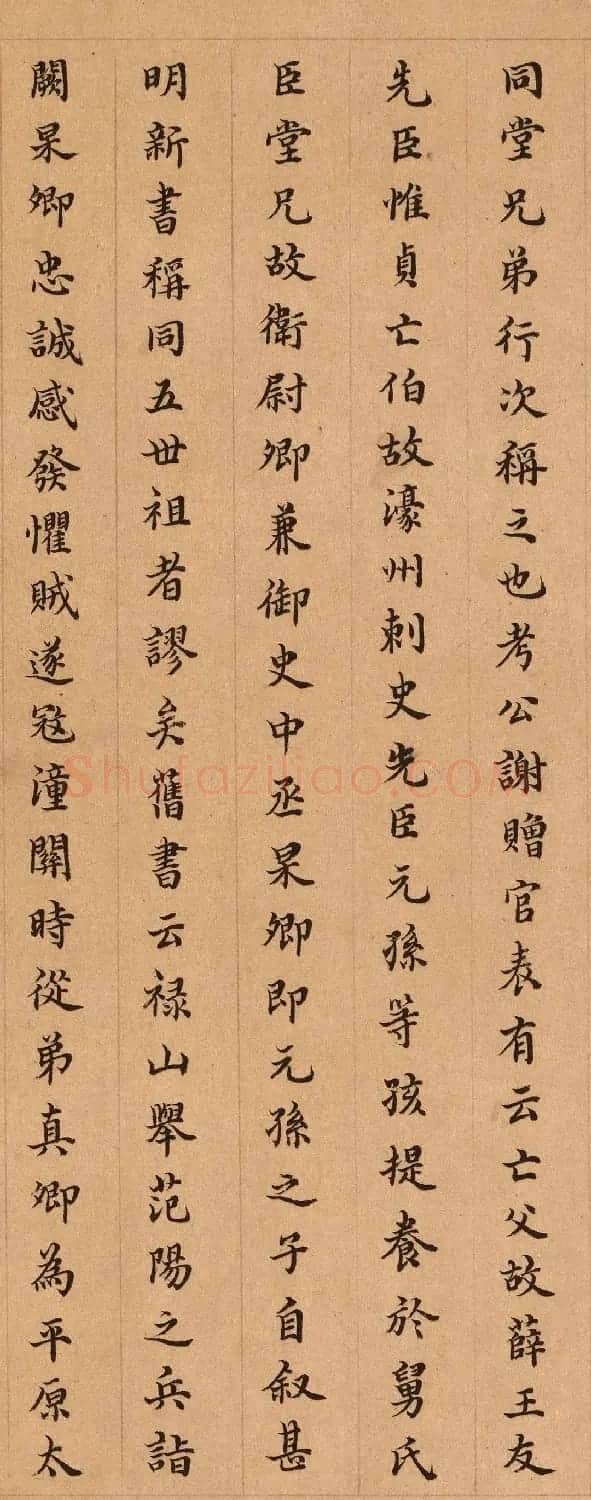 同堂兄弟行次稱之也考公謝贈官表有云亡父故薛王友
先臣惟貞亡伯故濠州刺史先臣元孫等孩提養於舅氏
臣堂兄故衛尉卿兼御史中丞杲卿即元孫之子自叙甚
明新書稱同五世祖者謬矣舊書云祿山舉范陽之兵詣
闕杲卿忠誠感發懼賊遂寇潼關時從弟真卿為平原太
Shufaziliao.com